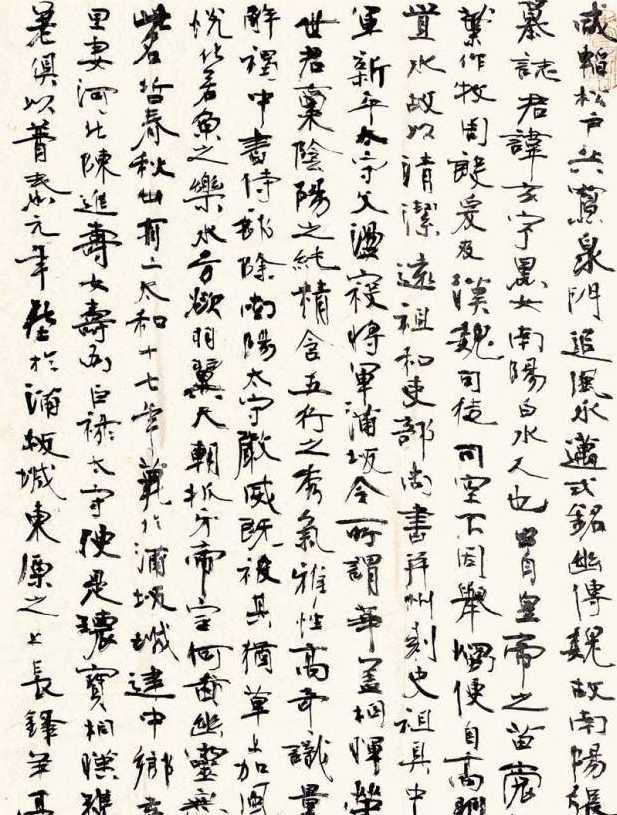 咸韜松戶共寒泉門追風永邁式銘幽傳魏故南陽張
墓誌君諱玄字黑女南陽白水人也出自皇帝之苗裔
葉作牧周殷爰及漢魏司徒司空不因舉燭便自高明
置水故以清潔遠祖和吏部尚書并州刺史祖具中
軍新平太守父盪寇將軍蒲坂令所謂華蓋相暉榮
世君稟陰陽之純精含五行之秀氣雅性高奇識量
解褐中書侍郎除南陽太守嚴威既被其猶草上加風
悅化若魚之樂水方欲羽翼天朝抓牙帝室何圖幽靈無
此名哲春秋卅有二太和十七年薨於蒲坂城建中鄉孝
里妻河北陳進壽女壽為巨祿太守便是瓌寶相暎瓊
差俱以普泰元年葬於蒲坂城東原之上長鋒羊